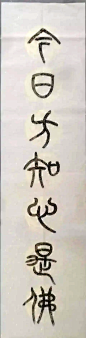 今日方知心是佛